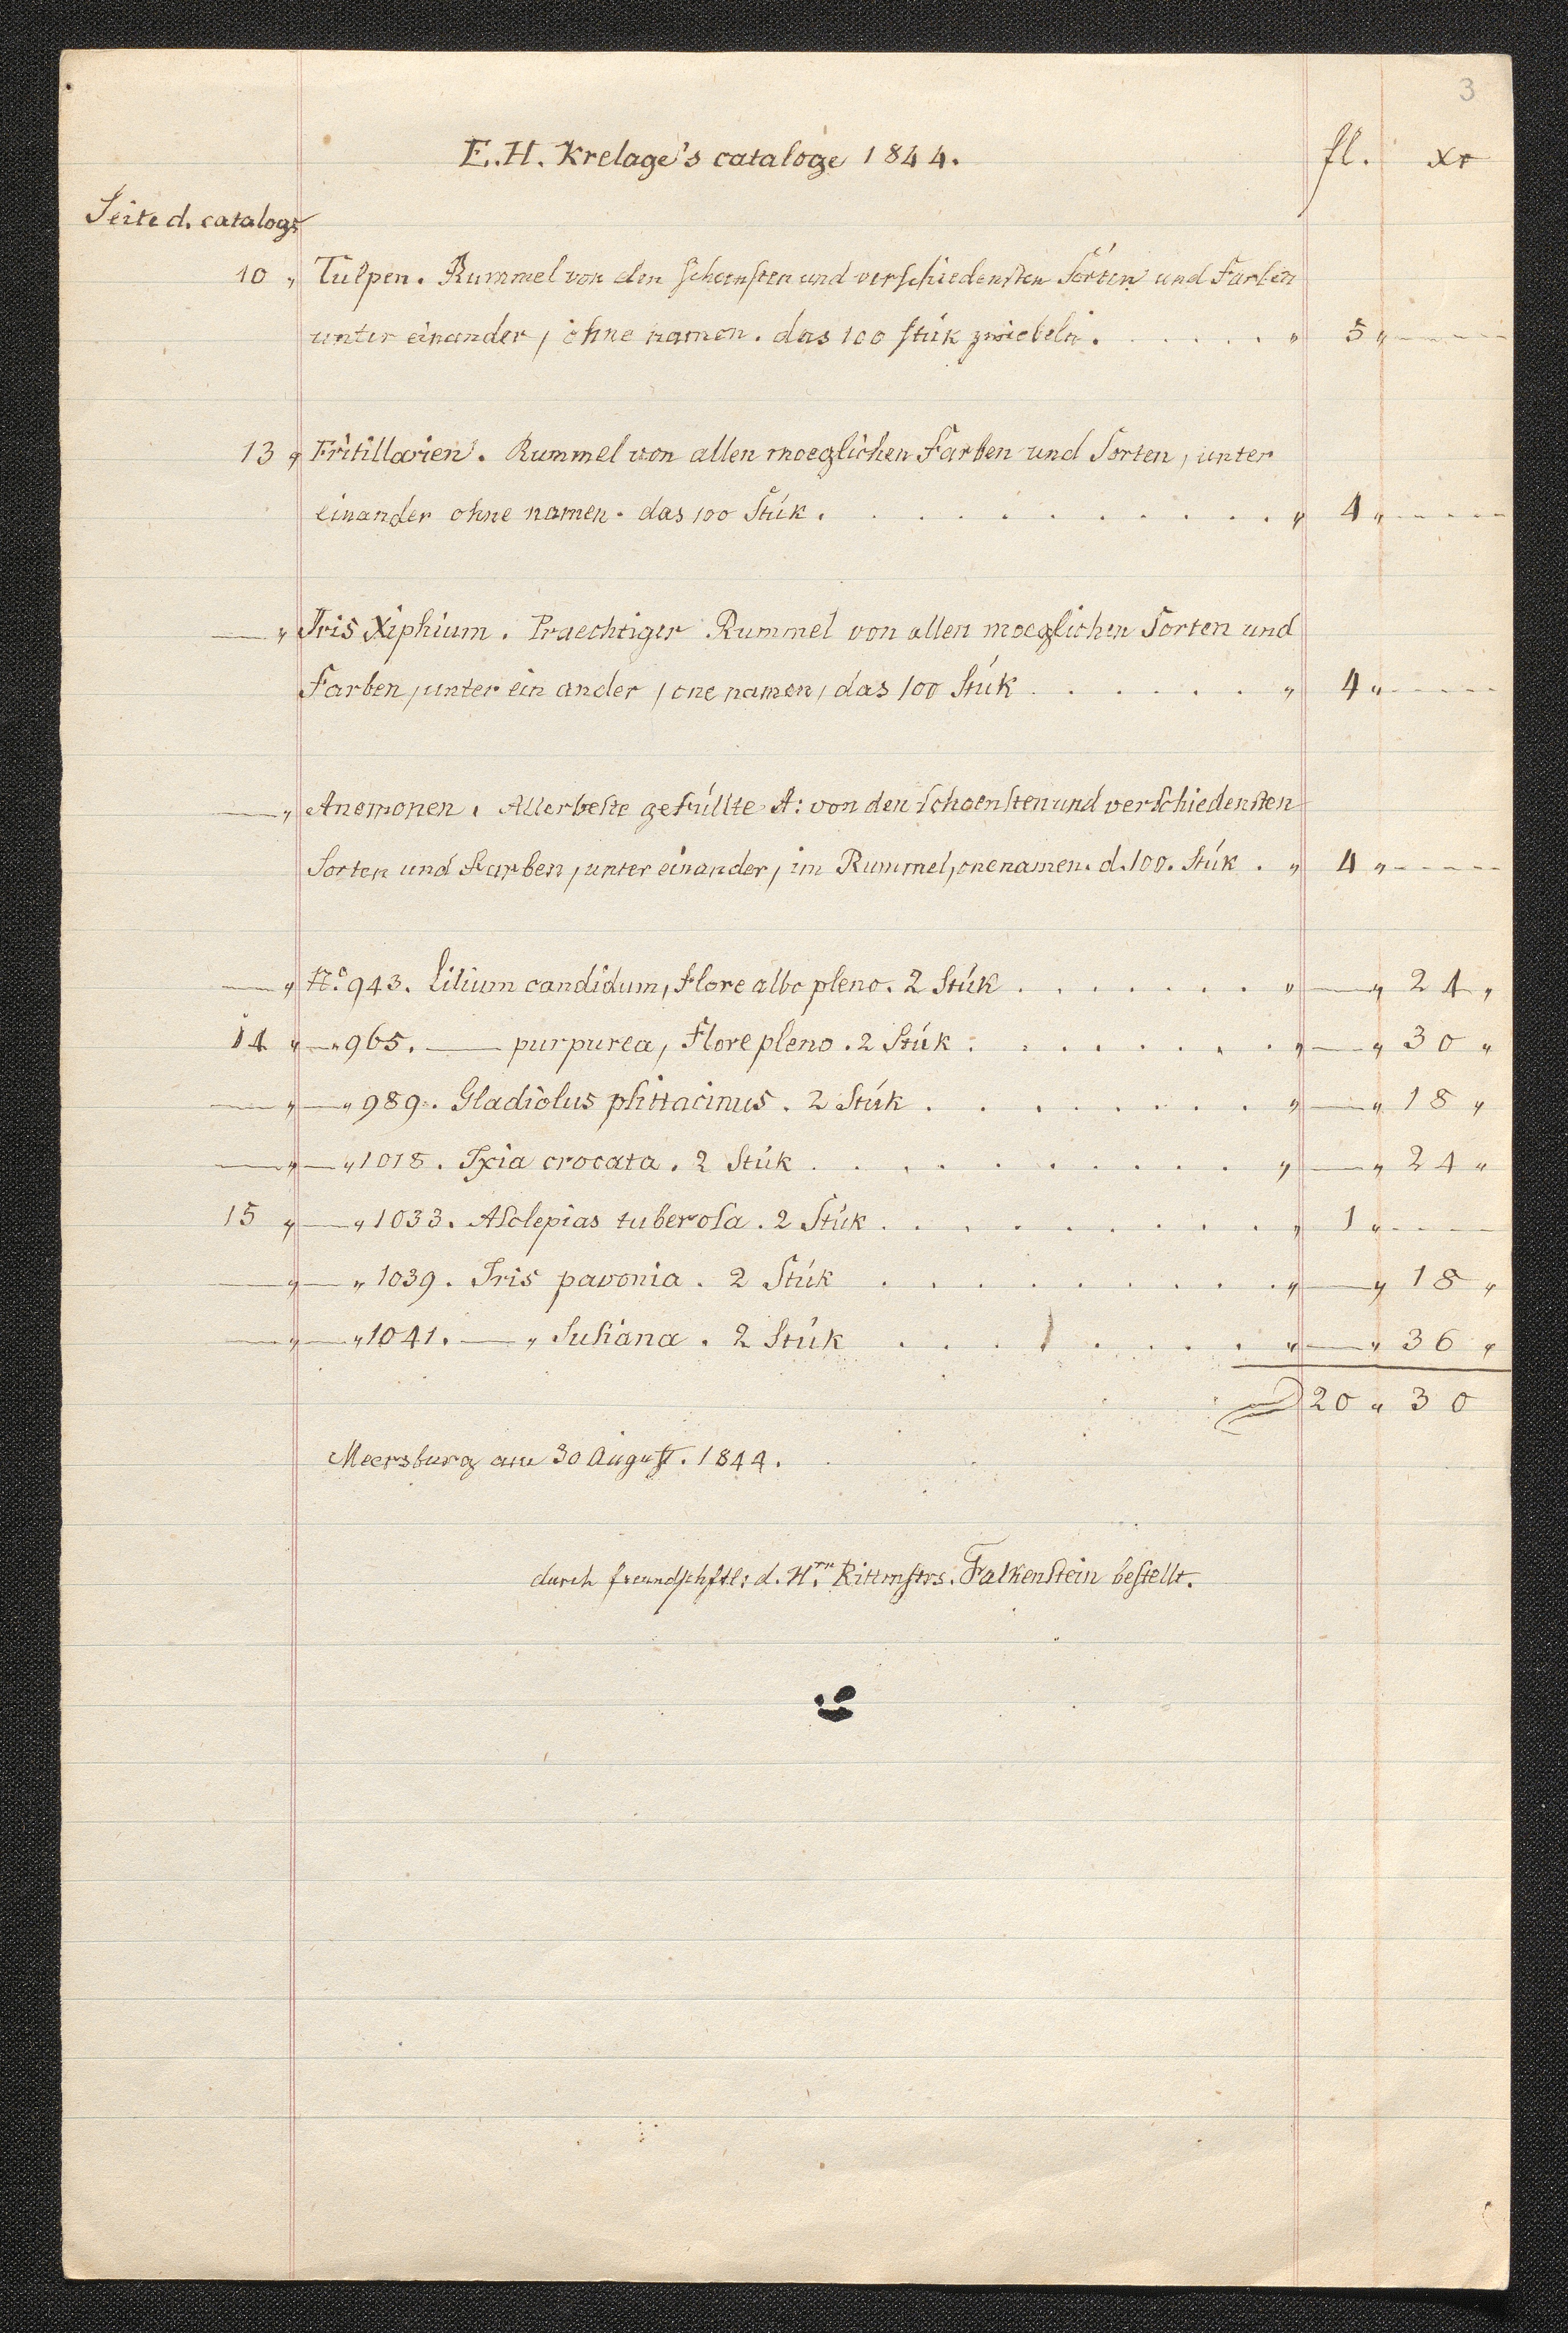 3
E. H. Krelage's cataloge 1844. fl. xr
Seite d. catalogs
10 „ Tulpen. Rummel von den schoensten und verschiedensten Sorten und Farben
unter einander, ohne namen. das 100 stük zwiebeln. . . . . . „ 5 „ ----
13 „ Fritillarien. Rummel von allen moeglichen Farben und Sorten, unter
einander ohne namen. das 100 Stük. . . . . . . . . . . „ 4 „ ----
— „ Iris Xiphium. Praechtiger Rummel von allen moeglichen Sorten und
Farben, unter ein ander, one namen, das 100 Stük . . . . . . „ 4 „ ----
— „ Anemonen. Allerbeste gefüllte A: von den schoensten und verschiedensten
Sorten und Farben, unter einander, im Rummel, one namen. d. 100. Stük . „ 4 „ ----
— „ No. 943. Lilium candidum, flore albo pleno. 2 Stük . . . . . . . „ — „ 24 „
14 „ — „ 965. — purpurea, flore pleno. 2 Stük . . . . . . . . „ — „ 30 „
— „ — „ 989. Gladiolus psittacinus. 2 Stük . . . . . . . . „ — „ 18 „
— „ — „ 1018. Ixia crocata. 2 Stük . . . . . . . . . . „ — „ 24 „
15 „ — „ 1033. Asclepias tuberosa. 2 Stük . . . . . . . . . „ 1 „ ----
— „ — „ 1039. Iris pavonia. 2 Stük . . . . . . . . . „ — „ 18 „
— „ — „ 1041. — „ Susiana. 2 Stük . . . . . . . . „ — „ 36 „
20 „ 30
Meersburg am 30 August. 1844.
durch freundschftl: d. Hrn. Rittmstrs. Falkenstein bestellt.